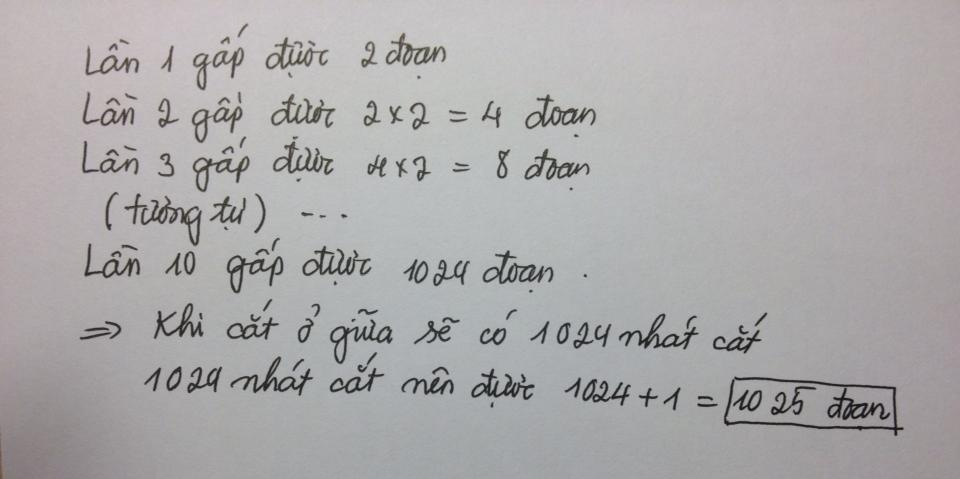 Lần 1 gấp được 2 đoạn
Lần 2 gấp được 2 x 2 = 4 đoạn
Lần 3 gấp được 4 x 2 = 8 đoạn
(tương tự) ...
Lần 10 gấp được 1024 đoạn.
=> Khi cắt ở giữa sẽ có 1024 nhát cắt
1024 nhát cắt nên được 1024 + 1 = 1025 đoạn